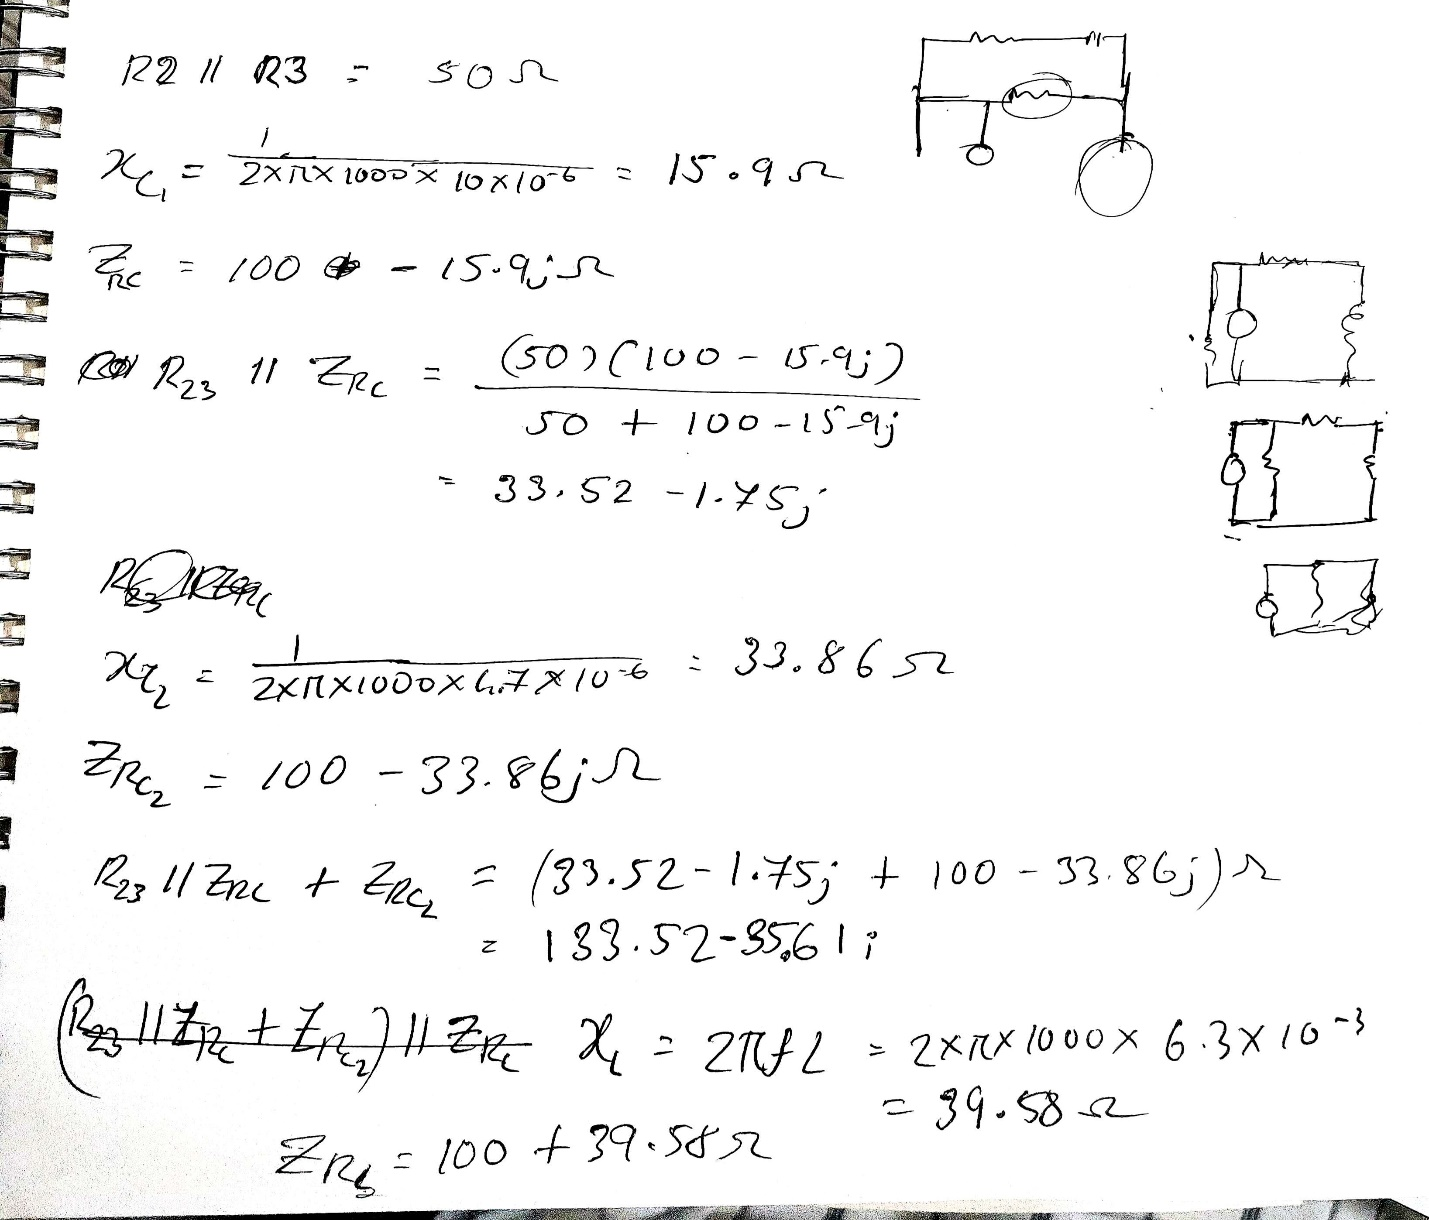 R2 // R3 = 50Ω
x_C₁ = 1 / 2×π×1000×10×10⁻⁶ = 15.9Ω
Z_RC = 100 - 15.9jΩ
R₂₃ // Z_RC = (50)(100 - 15.9j) / 50 + 100 - 15.9j
= 33.52 - 1.75j
x_C₂ = 1 / 2×π×1000×4.7×10⁻⁶ = 33.86Ω
Z_RC₂ = 100 - 33.86jΩ
R₂₃ // Z_RC + Z_RC₂ = (33.52 - 1.75j + 100 - 33.86j)Ω
= 133.52 - 35.61j
(R₂₃ // Z_RC + Z_RC₂) // Z_RC x_L = 2πfL = 2×π×1000×6.3×10⁻³
= 39.58Ω
Z_RL = 100 + 39.58Ω